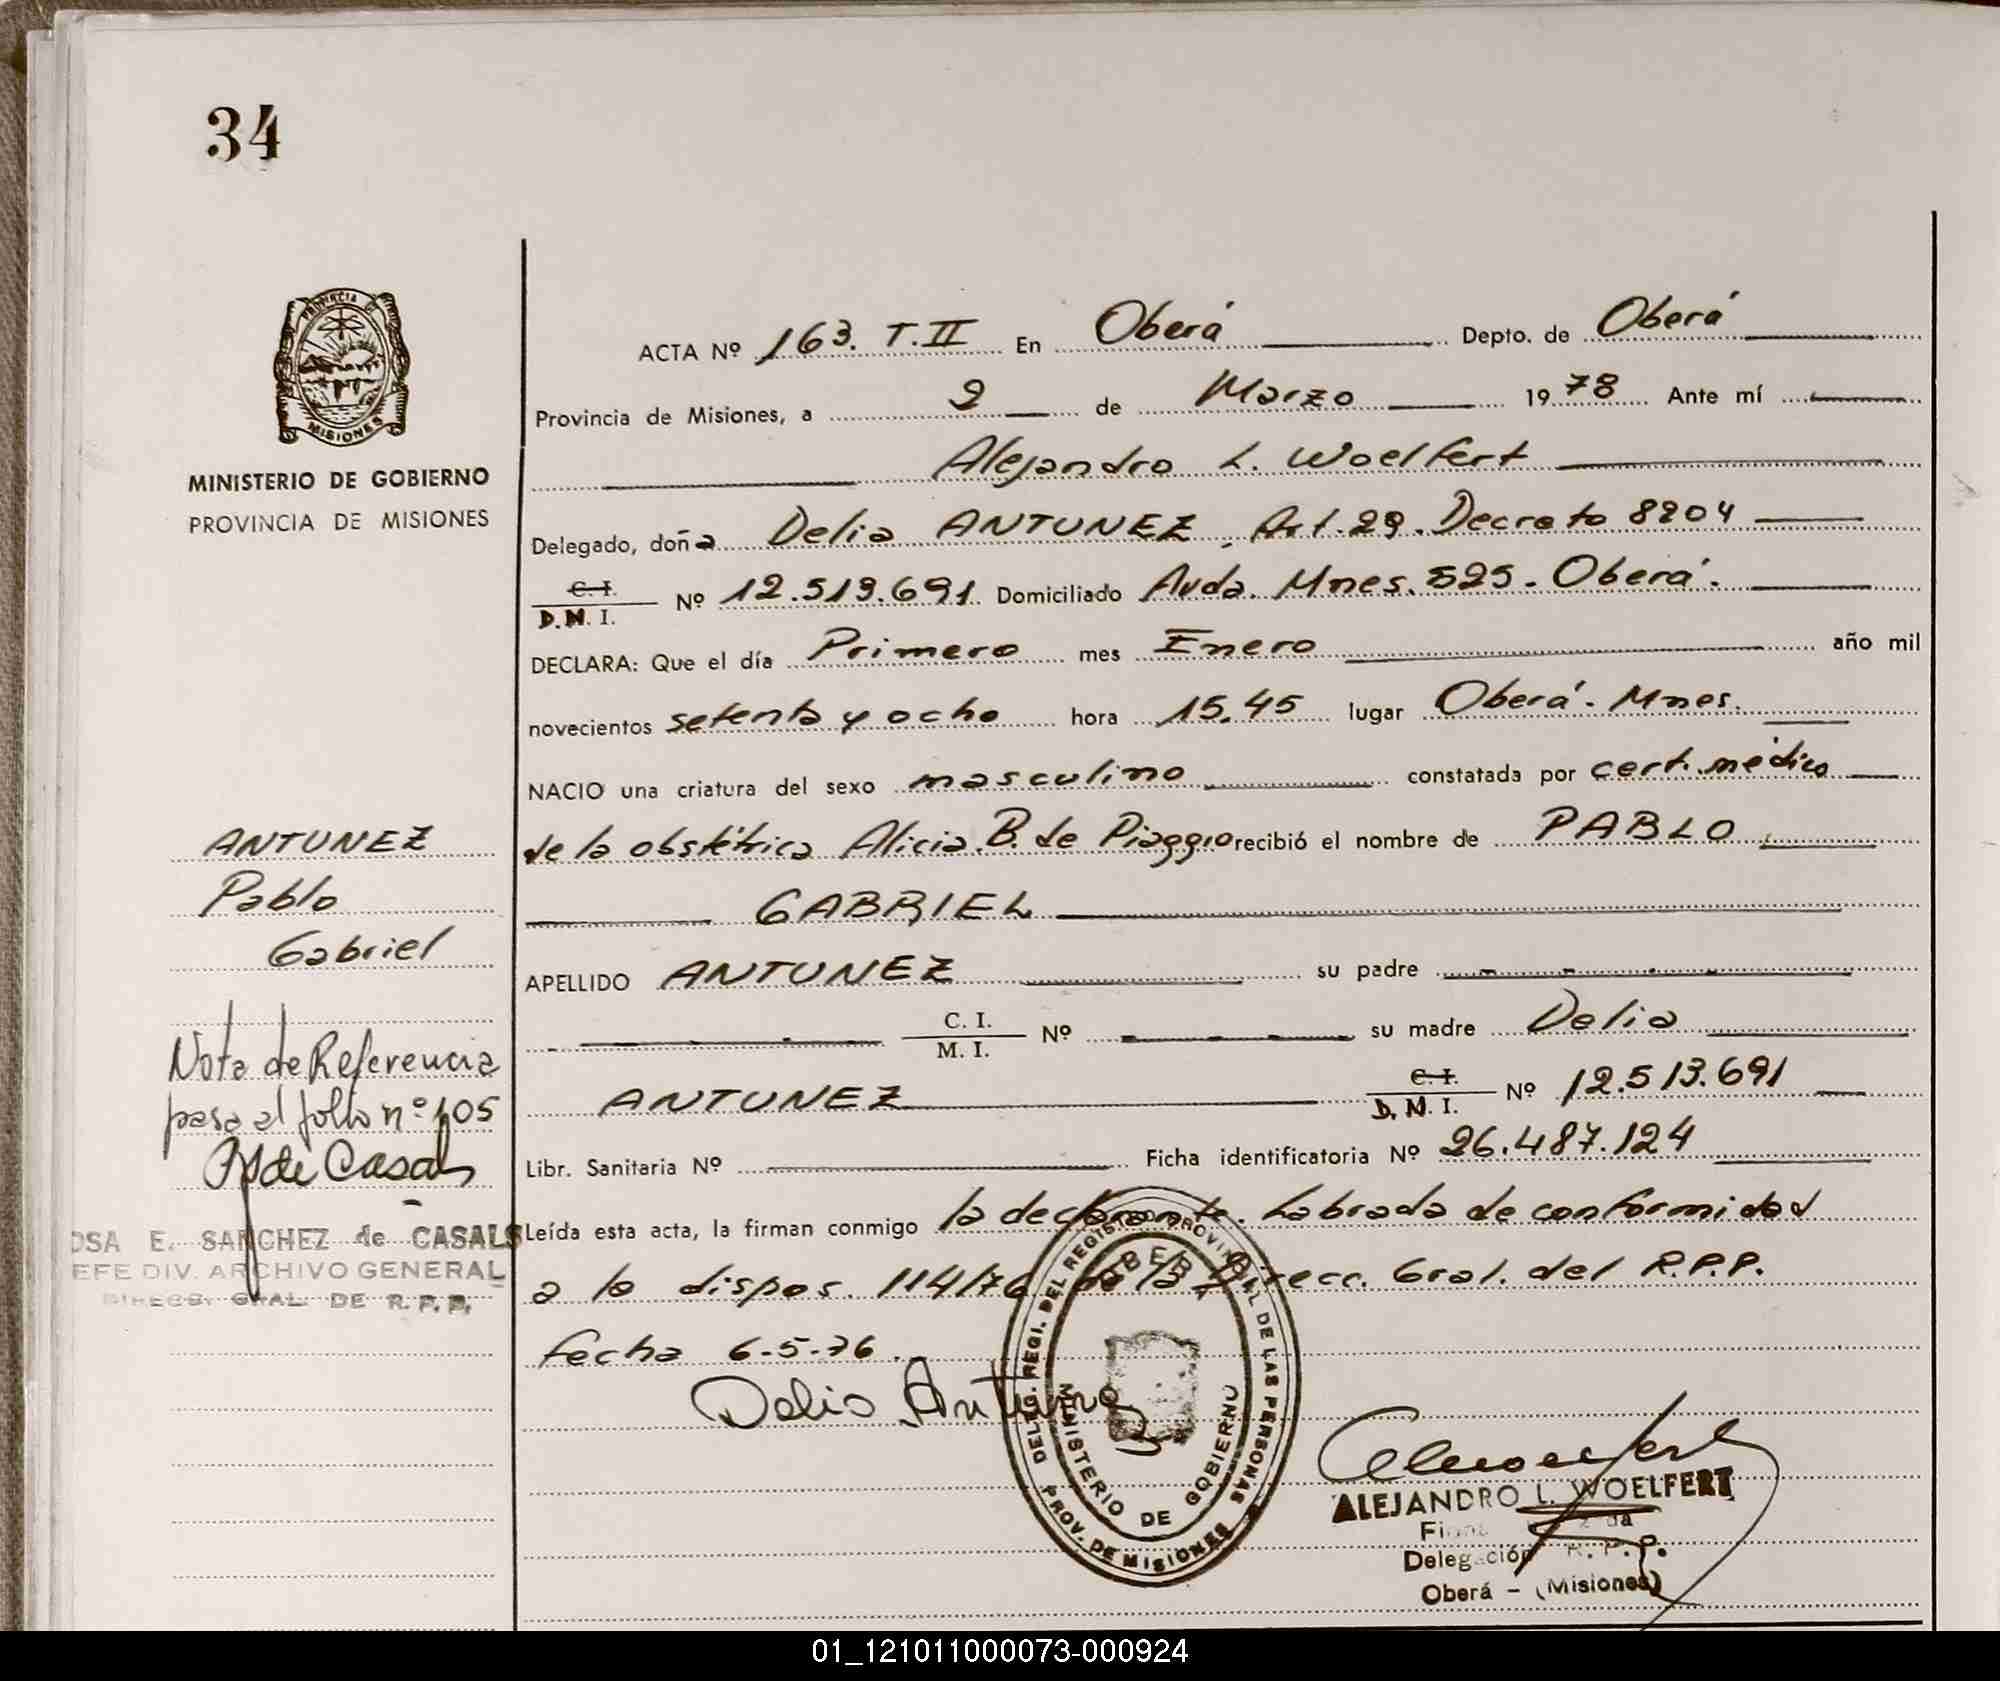 34
PROVINCIA DE
MISIONES
MINISTERIO DE GOBIERNO
PROVINCIA DE MISIONES
ACTA Nº 163. T.II En Oberá Depto. de Oberá
Provincia de Misiones, a 2 de Marzo 1978 Ante mí
Alejandro L. Woelfert
Delegado, doña Delia ANTUNEZ, Art. 29. Decreto 8204
C. I.
D.N. I. Nº 12.513.691 Domiciliado Avda. Mnes. 525. Oberá.
DECLARA: Que el día Primero mes Enero año mil
novecientos setenta y ocho hora 15.45 lugar Oberá. Mnes.
NACIO una criatura del sexo masculino constatada por cert. médico
de la obstétrica Alicia B. de Piaggio recibió el nombre de PABLO
GABRIEL
APELLIDO ANTUNEZ su padre
C. I.
M. I. Nº su madre Delia
ANTUNEZ C. I.
D. N. I. Nº 12.513.691
Libr. Sanitaria Nº Ficha identificatoria Nº 26.487.124
Leída esta acta, la firman conmigo la declarante. Labrada de conformidad
a la dispos. 114/76 de la Direcc. Gral. del R.P.P.
fecha 6-5-76.
Delia Antunez
ANTUNEZ
Pablo
Gabriel
Nota de Referencia
pasa al folio nº 105
R S de Casals
OSA E. SANCHEZ de CASALS
EFE DIV. ARCHIVO GENERAL
DIRECC. GRAL. DE R. P. P.
DELEG. REGI. DEL REGISTRO PROVINCIAL DE LAS PERSONAS
PROV. DE MISIONES
OBERA
MINISTERIO DE GOBIERNO
ALEJANDRO L. WOELFERT
Delegación R. P. P.
Oberá - (Misiones)
01_121011000073-000924